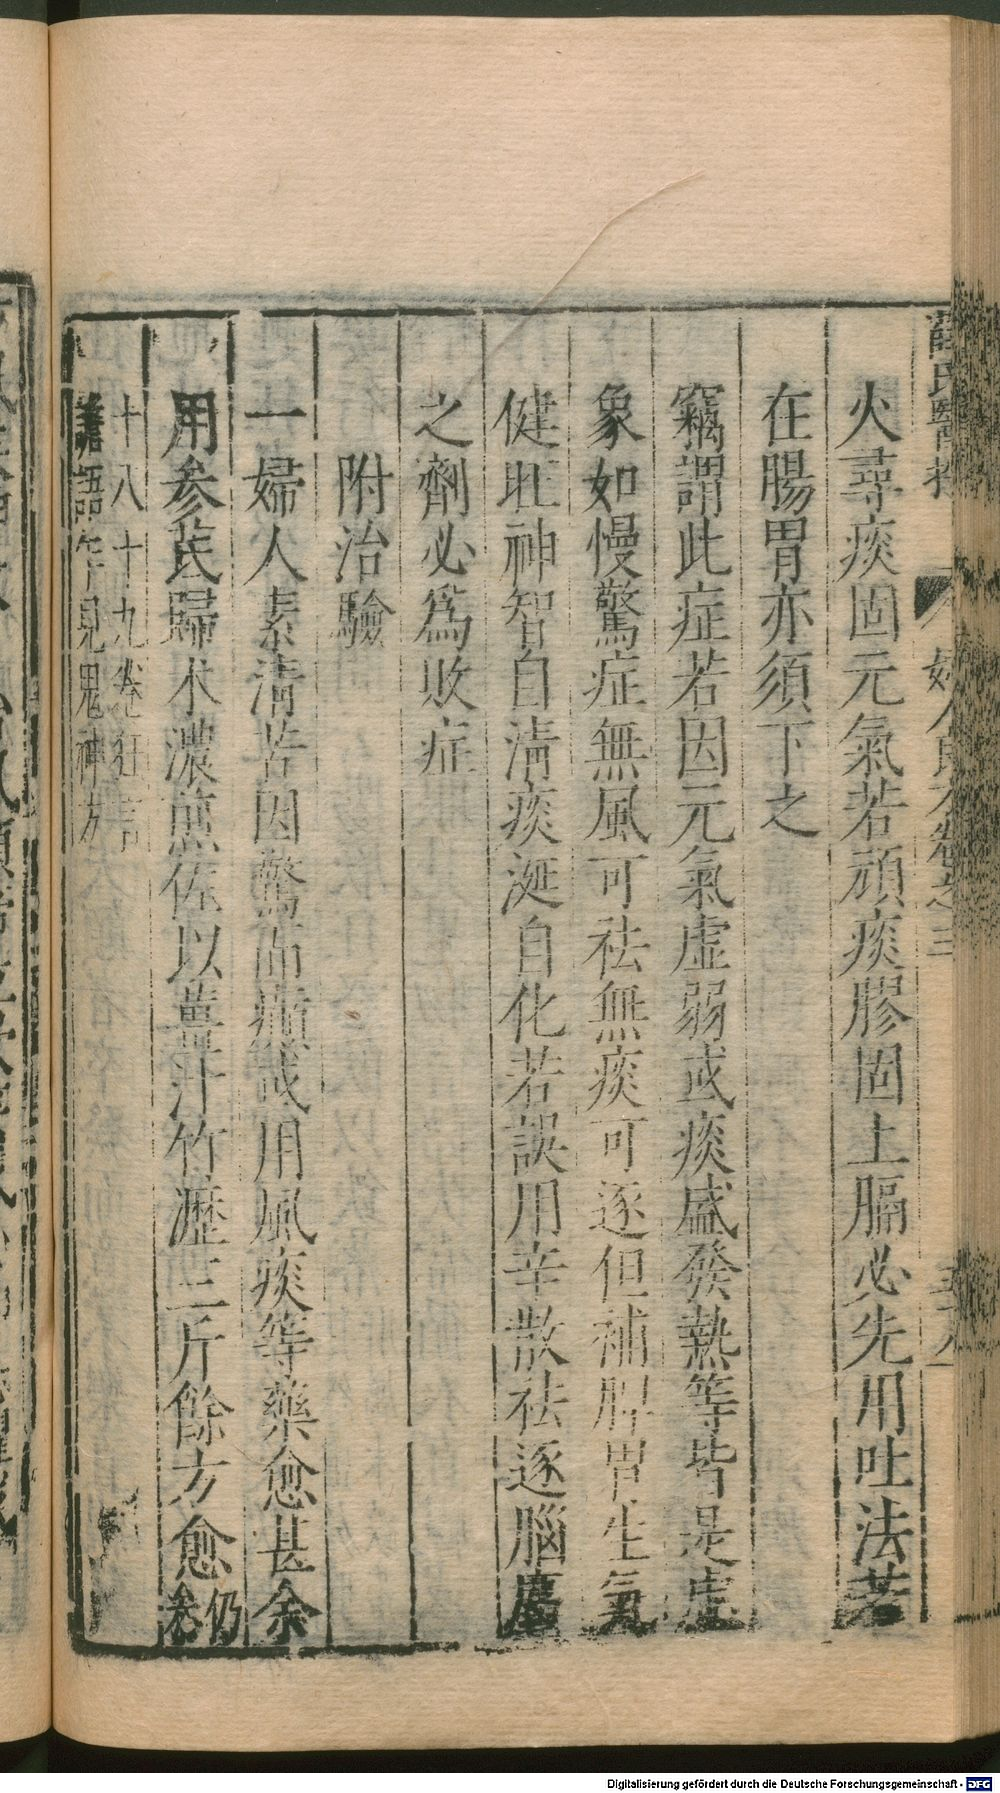 火尋痰固元氣若頑痰膠固上膈必先用吐法若
在腸胃亦須下之
竊謂此症若因元氣虛弱或痰盛發熱等皆是虛
象如慢驚症無風可祛無痰可逐但補脾胃生氣
健旺神智自清痰涎自化若誤用辛散祛逐腦麝
之劑必為敗症
附治驗
一婦人素清苦因驚而癲或用風痰等藥愈甚余
用參芪歸朮濃煎佐以薑汁竹瀝三斤餘方愈仍參
十八十九卷狂言
譫語乍見鬼神方
薛氏醫按
婦人良方卷之三
Digitalisierung gefördert durch die Deutsche Forschungsgemeinschaft - DFG